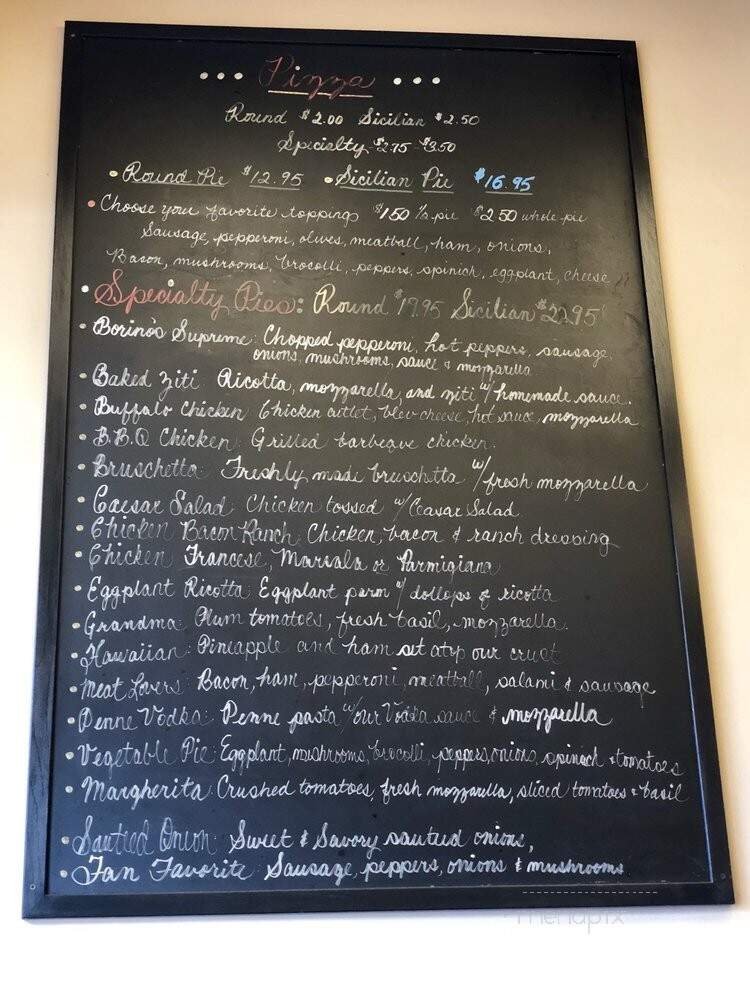 ... Pizza ...
Round $2.00 Sicilian $2.50
Specialty $2.75 - $3.50
• Round Pie $12.95 • Sicilian Pie $16.95
• Choose your favorite toppings $1.50 ½ pie $2.50 whole pie
Sausage, pepperoni, olives, meatball, ham, onions,
Bacon, mushrooms, brocolli, peppers, spinich, eggplant, cheese
• Specialty Pies: Round $19.95 Sicilian $22.95
• Borino's Supreme: Chopped pepperoni, hot peppers, sausage,
onions, mushrooms, sauce & mozzarella
• Baked Ziti Ricotta, mozzarella, and ziti w/ homemade sauce.
• Buffalo Chicken Chicken cutlet, bleu cheese, hot sauce, mozzarella
• B.B.Q Chicken: Grilled barbeque chicken.
• Bruschetta: Freshly made bruschetta w/ fresh mozzarella
• Caesar Salad: Chicken tossed w/ Ceasar Salad
• Chicken Bacon Ranch: Chicken, bacon & ranch dressing
• Chicken Francese, Marsala or Parmigiana
• Eggplant Ricotta Eggplant parm w/ dollops of ricotta
• Grandma: Plum tomatoes, fresh basil, mozzarella.
• Hawaiian: Pineapple and ham set atop our crust
• Meat Lovers: Bacon, ham, pepperoni, meatball, salami & sausage
• Penne Vodka: Penne pasta w/ our Vodka sauce & mozzarella
• Vegetable Pie: Eggplant, mushrooms, brocolli, peppers, onions, spinach & tomatoes
• Margherita: Crushed tomatoes, fresh mozzarella, sliced tomatoes & basil
• Sautied Onion: Sweet & Savory sautied onions,
• Fan Favorite: Sausage, peppers, onions & mushrooms
menupix